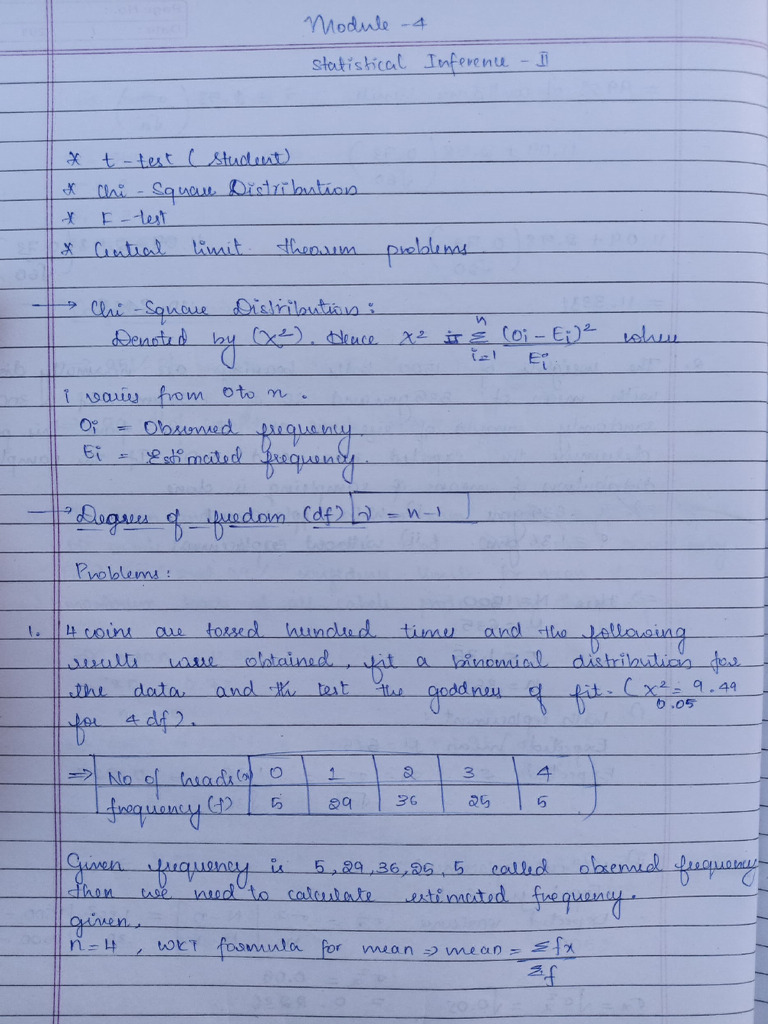 Module - 4
Statistical Inference - II
* t-test (student)
* Chi-Square Distribution
* F-test
* Central limit theorem problems
→ Chi-Square Distribution:
Denoted by (χ²). Hence χ² = Σ (Oi - Ei)² / Ei where
n
i=1
i varies from 0 to n.
Oi = Observed frequency.
Ei = Estimated frequency.
→ Degrees of freedom (df) ν = n-1
Problems:
1. 4 coins are tossed hundred times and the following
results were obtained, fit a binomial distribution for
the data and th test the goddness of fit. (χ²0.05 = 9.49
for 4 df).
⇒ No of heads(x) 0 1 2 3 4
frequency(f) 5 29 36 25 5
Given frequency is 5, 29, 36, 25, 5 called observed frequency
then we need to calculate estimated frequency.
given,
n=4, WKT formula for mean ⇒ mean = Σfx / Σf